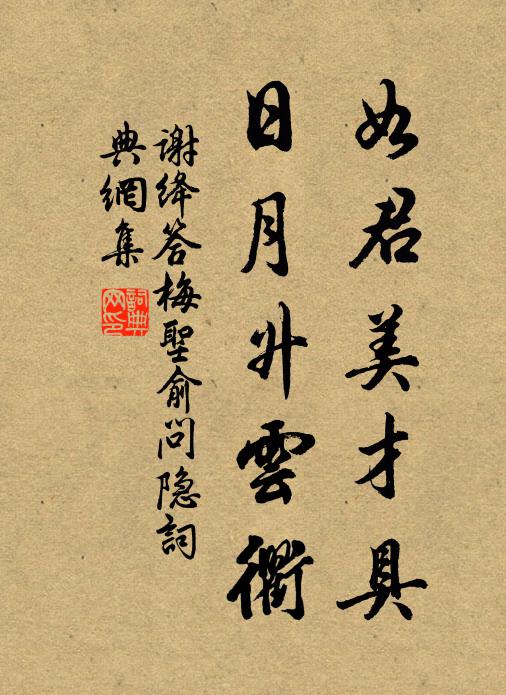 如君美才具
日月升雲衢
谢绛答梅聖俞问隐詞
典網集
詞典網印